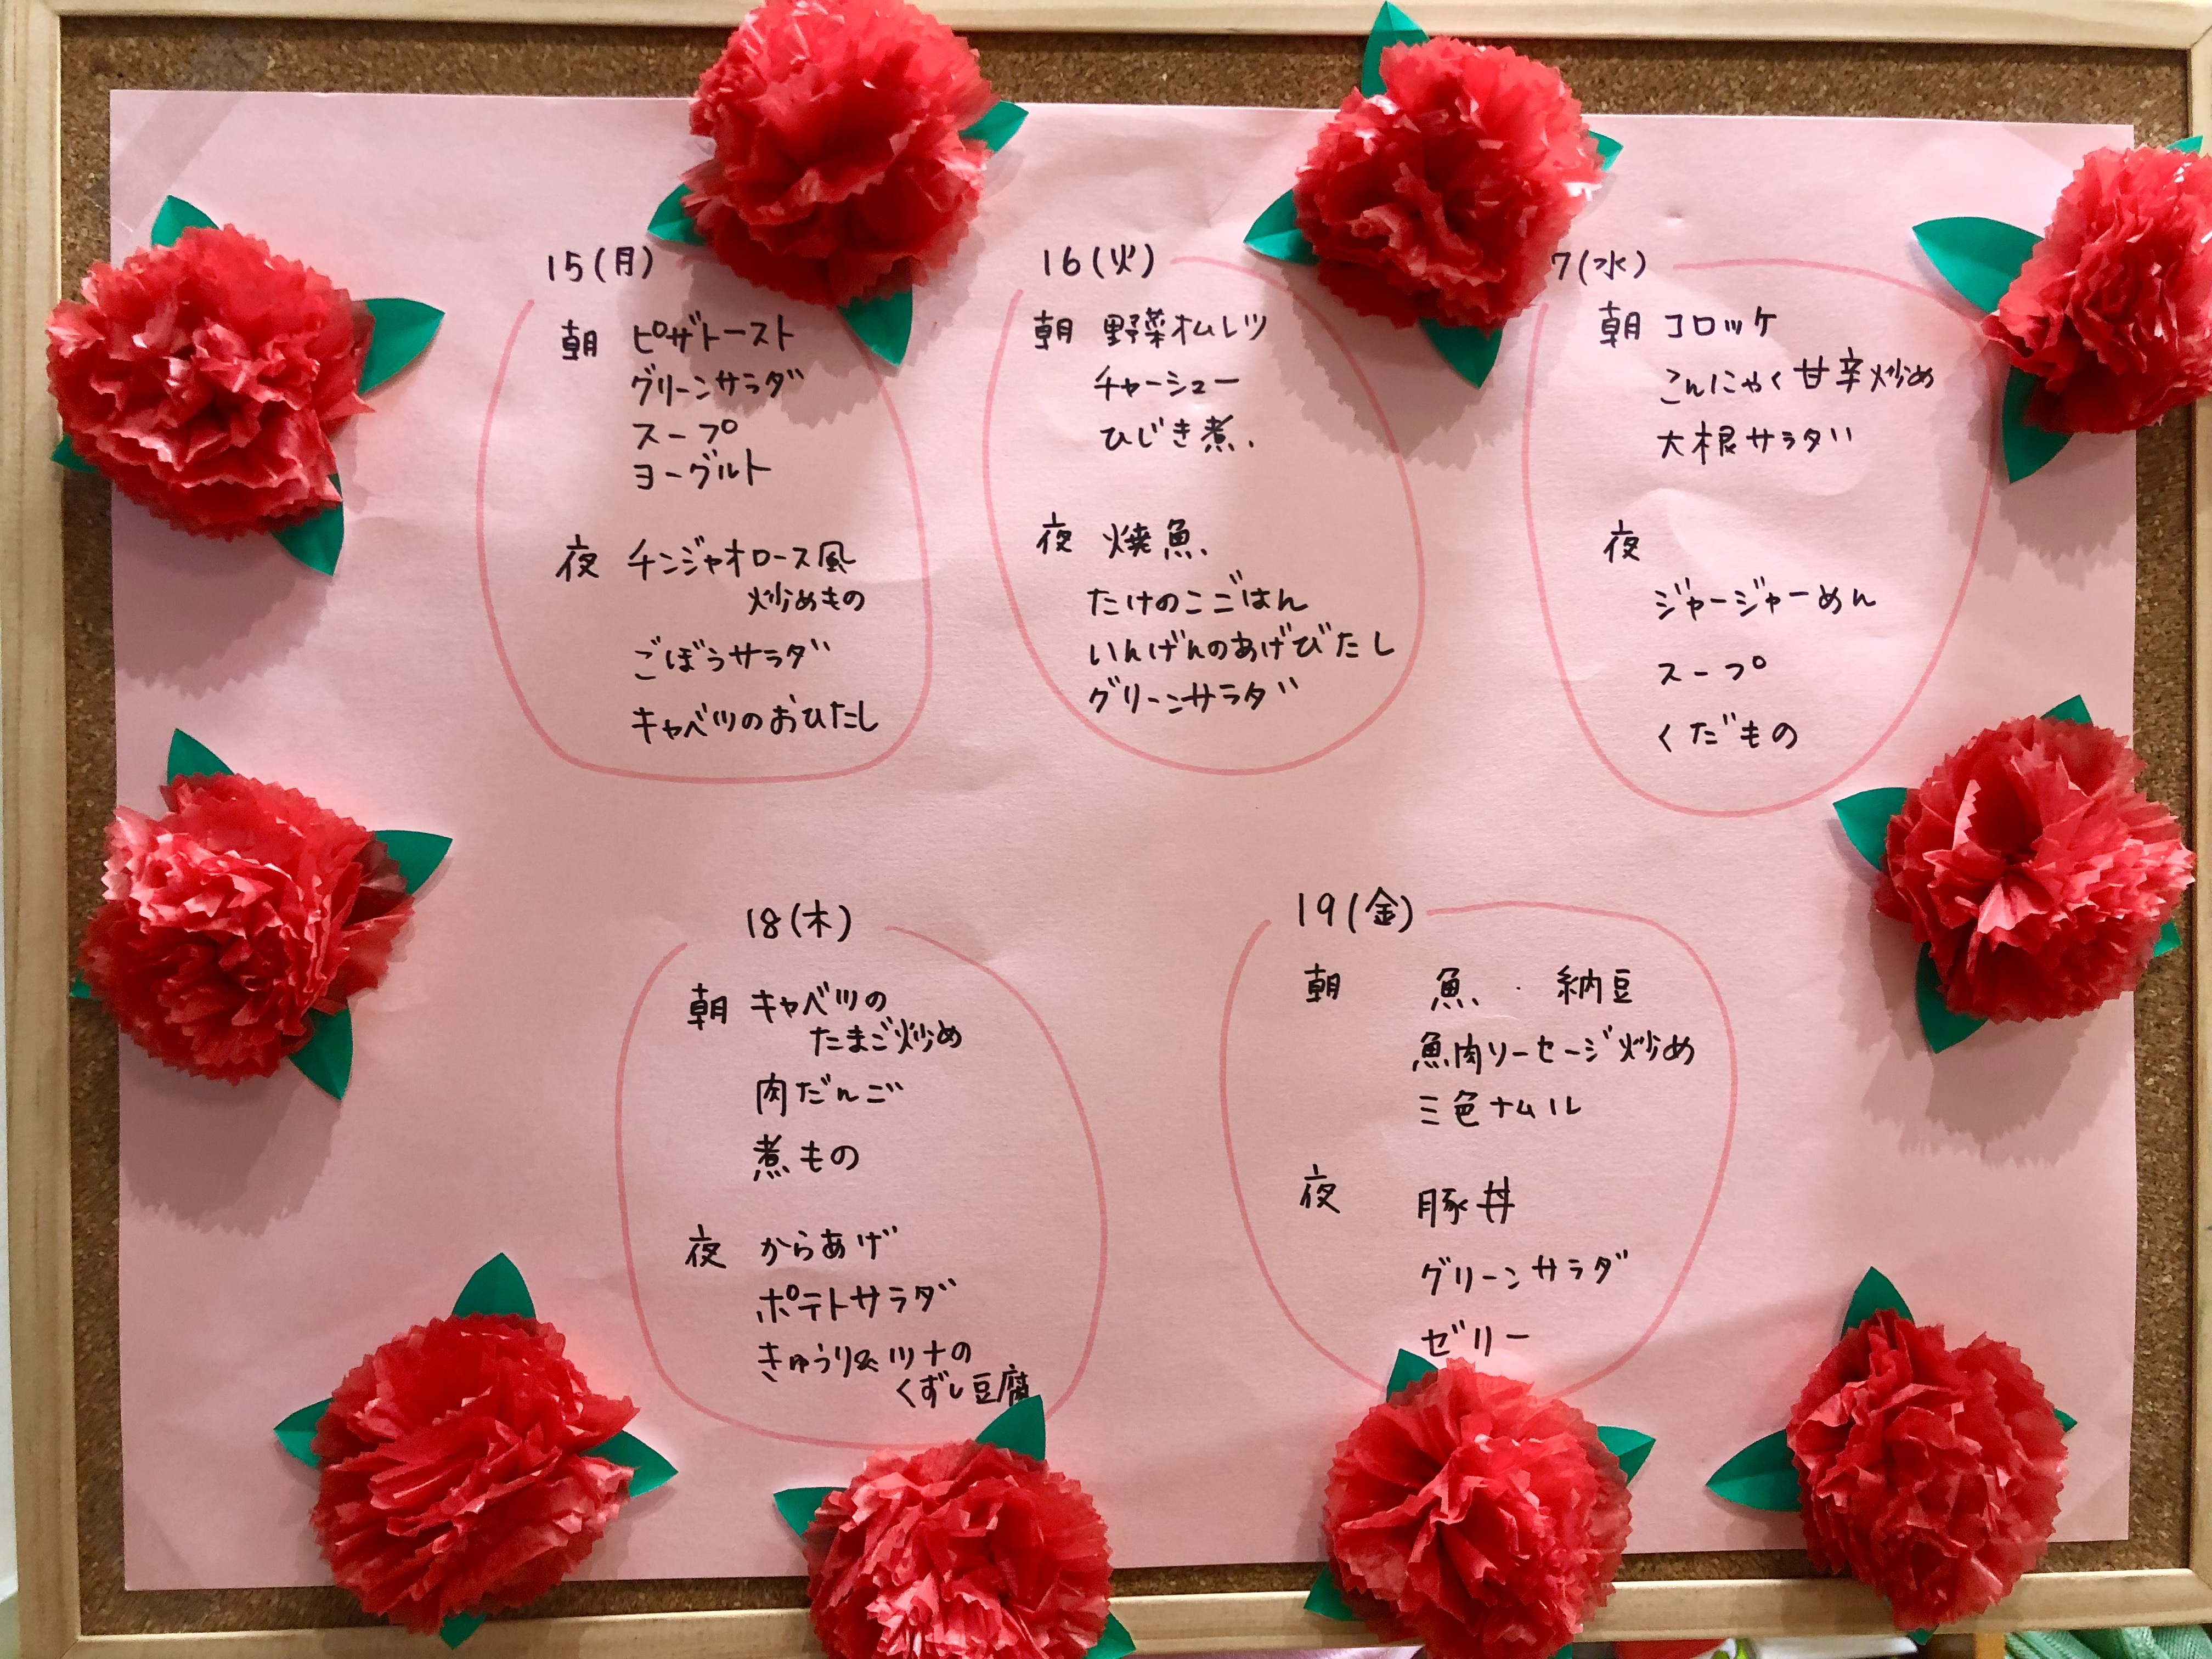 15(月)
朝 ピザトースト
グリーンサラダ
スープ
ヨーグルト
夜 チンジャオロース風
炒めもの
ごぼうサラダ
キャベツのおひたし
16(火)
朝 野菜オムレツ
チャーシュー
ひじき煮
夜 焼魚
たけのこごはん
いんげんのあげびたし
グリーンサラダ
7(水)
朝 コロッケ
こんにゃく甘辛炒め
大根サラダ
夜
ジャージャーめん
スープ
くだもの
18(木)
朝 キャベツの
たまご炒め
肉だんご
煮もの
夜 からあげ
ポテトサラダ
きゅうり&ツナの
くずし豆腐
19(金)
朝 魚・納豆
魚肉ソーセージ炒め
三色ナムル
夜 豚丼
グリーンサラダ
ゼリー